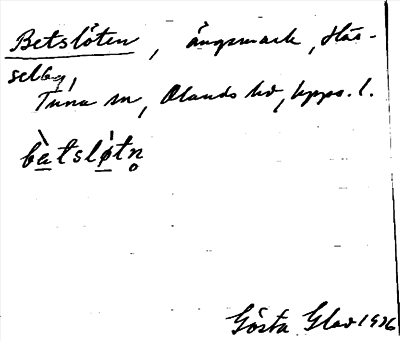 Betslöten, ängsmark, Häs-
selby,
Tuna sn, Olands hd, Upps. l.
bètsløtn̥
Gösta Glad 1936